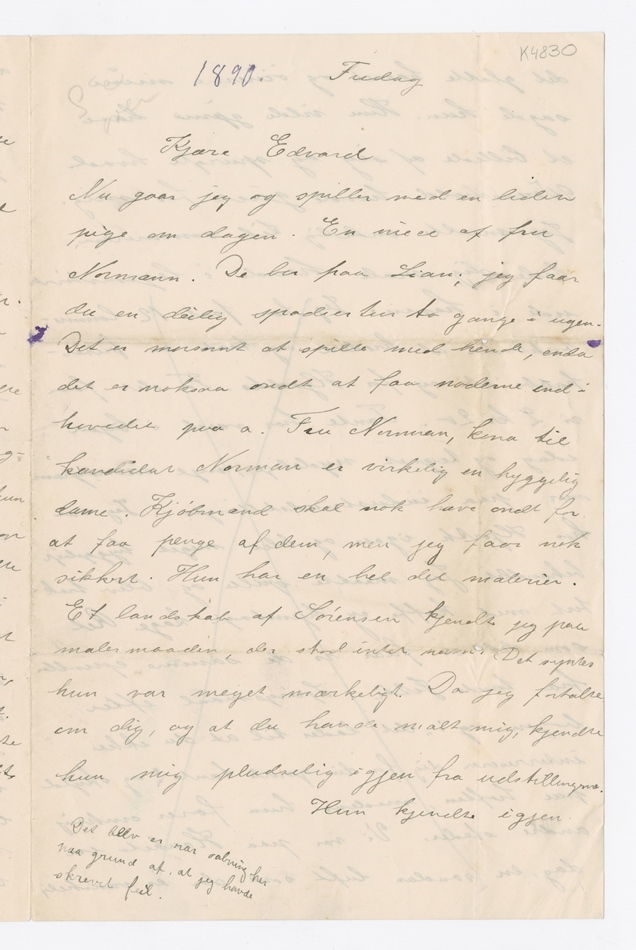 K4830
1890. Fredag
Kjære Edvard
Nu gaar jeg og spiller med en liden
pige om dagen. En niece af fru
Normann. De bor paa Lian; jeg faar
da en deilig spadsertur to gange i ugen.
Det er morsomt at spille med hende, enda
det er noksaa ondt at faa noderne ind i
hovedet paa a. Fru Norman, kona til
kandidat Norman er virkelig en hyggelig
dame. Kjøbmænd skal nok have ondt for
at faa penge af dem, men jeg faar nok
sikkert. Hun har en hel del malerier.
Et landskab af Sørensen kjendte jeg paa
malermaaden, der stod intet navn. Det syntes
hun var meget mærkeligt. Da jeg fortalte
om dig, og at du havde malt mig, kjendte
hun mig pludselig igjen fra udstillingen.
Hun kjendte igjen
Det er
paa grund af, at jeg havde
skrevet feil.